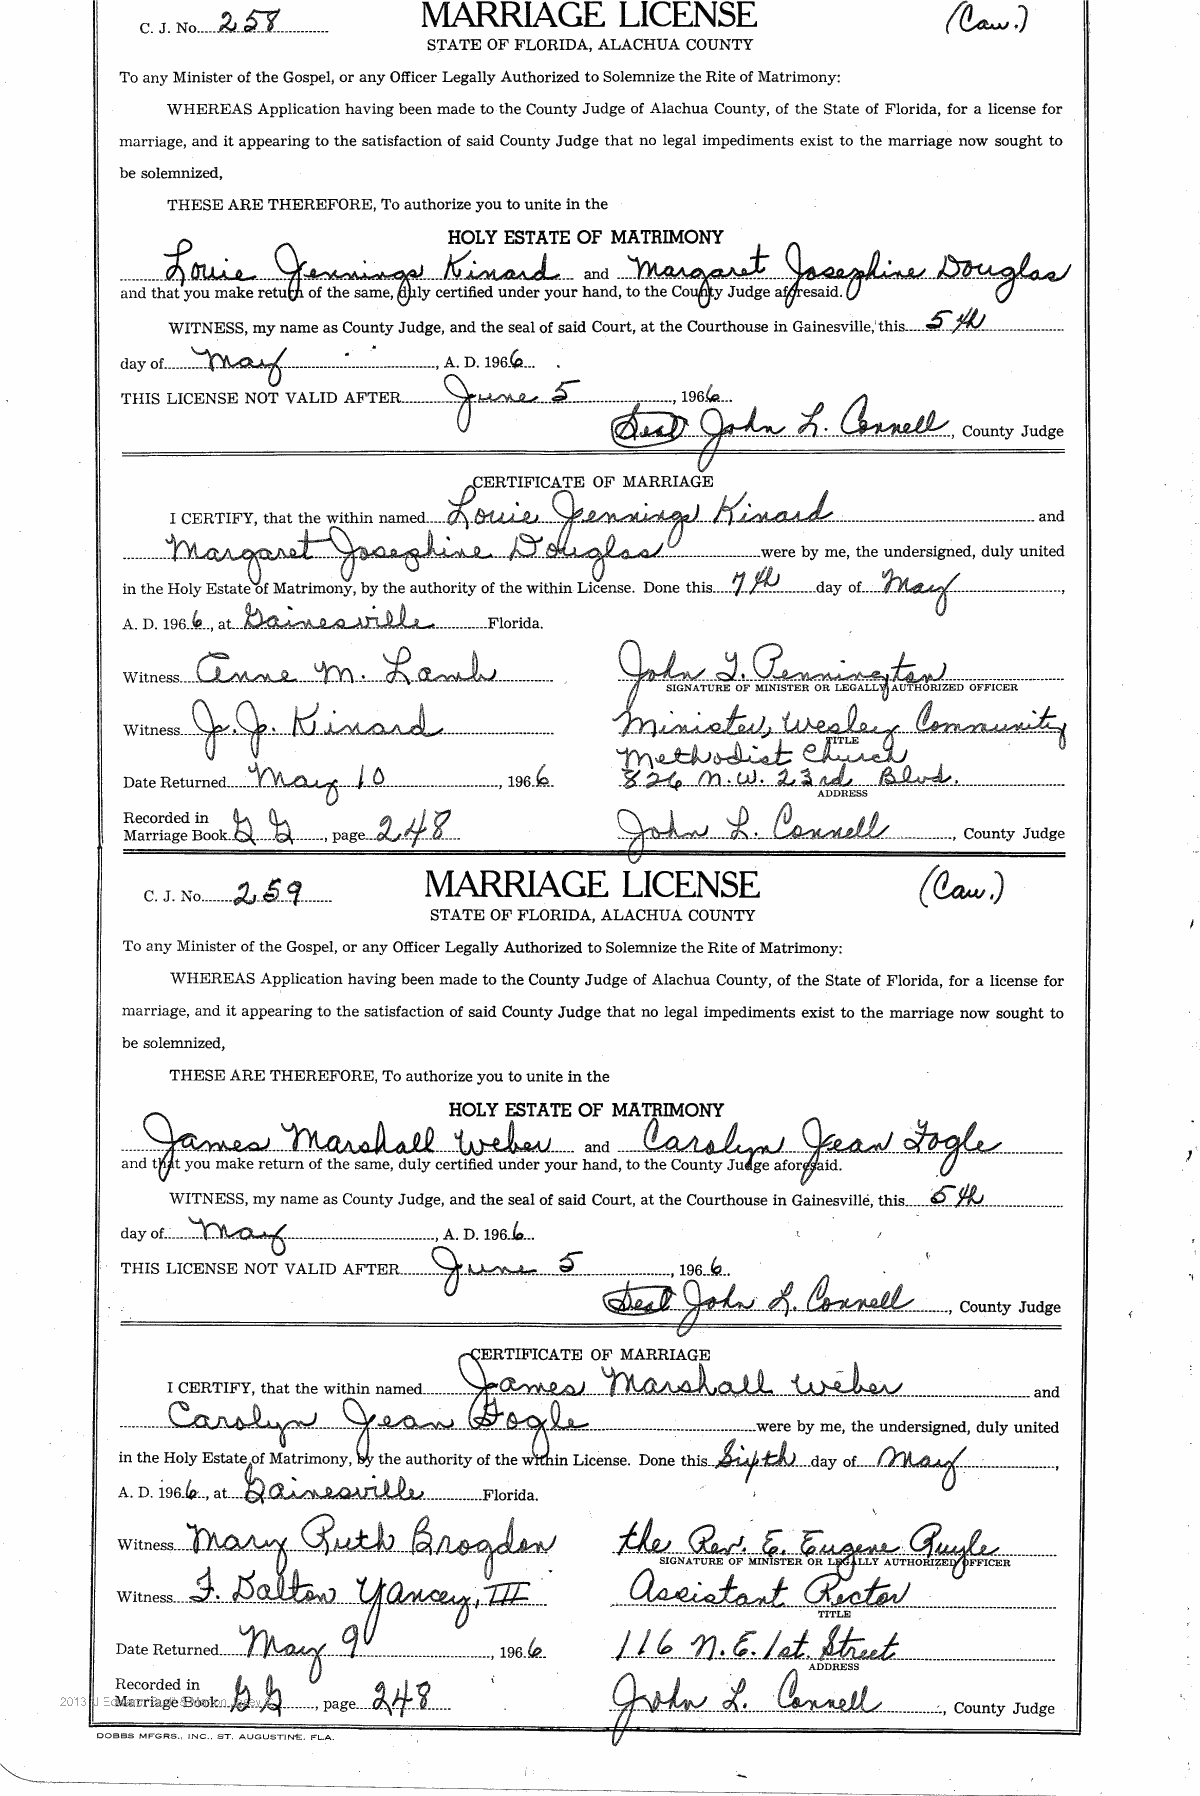 C. J. No. 258 MARRIAGE LICENSE (Cau.)
STATE OF FLORIDA, ALACHUA COUNTY
To any Minister of the Gospel, or any Officer Legally Authorized to Solemnize the Rite of Matrimony:
WHEREAS Application having been made to the County Judge of Alachua County, of the State of Florida, for a license for
marriage, and it appearing to the satisfaction of said County Judge that no legal impediments exist to the marriage now sought to
be solemnized,
THESE ARE THEREFORE, To authorize you to unite in the
HOLY ESTATE OF MATRIMONY
Louie Jennings Kinard and Margaret Josephine Douglas
and that you make return of the same, duly certified under your hand, to the County Judge aforesaid.
WITNESS, my name as County Judge, and the seal of said Court, at the Courthouse in Gainesville, this 5th
day of May, A. D. 1966
THIS LICENSE NOT VALID AFTER June 5, 1966
Seal John L. Connell, County Judge
CERTIFICATE OF MARRIAGE
I CERTIFY, that the within named Louie Jennings Kinard and
Margaret Josephine Douglas were by me, the undersigned, duly united
in the Holy Estate of Matrimony, by the authority of the within License. Done this 7th day of May,
A. D. 1966, at Gainesville Florida.
Witness Anne M. Lamb John T. Pennington
SIGNATURE OF MINISTER OR LEGALLY AUTHORIZED OFFICER
Witness J. J. Kinard Minister, Wesley Community
TITLE
Methodist Church
Date Returned May 10, 1966 826 N.W. 23rd Blvd.
ADDRESS
Recorded in
Marriage Book GG, page 248 John L. Connell, County Judge
C. J. No. 259 MARRIAGE LICENSE (Cau.)
STATE OF FLORIDA, ALACHUA COUNTY
To any Minister of the Gospel, or any Officer Legally Authorized to Solemnize the Rite of Matrimony:
WHEREAS Application having been made to the County Judge of Alachua County, of the State of Florida, for a license for
marriage, and it appearing to the satisfaction of said County Judge that no legal impediments exist to the marriage now sought to
be solemnized,
THESE ARE THEREFORE, To authorize you to unite in the
HOLY ESTATE OF MATRIMONY
James Marshall Weber and Carolyn Jean Fogle
and that you make return of the same, duly certified under your hand, to the County Judge aforesaid.
WITNESS, my name as County Judge, and the seal of said Court, at the Courthouse in Gainesville, this 5th
day of May, A. D. 1966
THIS LICENSE NOT VALID AFTER June 5, 1966
Seal John L. Connell, County Judge
CERTIFICATE OF MARRIAGE
I CERTIFY, that the within named James Marshall Weber and
Carolyn Jean Fogle were by me, the undersigned, duly united
in the Holy Estate of Matrimony, by the authority of the within License. Done this Sixth day of May,
A. D. 1966, at Gainesville Florida.
Witness Mary Ruth Brogdon the Rev. E. Eugene Ruyle
SIGNATURE OF MINISTER OR LEGALLY AUTHORIZED OFFICER
Witness F. Dalton Yancey, III Assistant Rector
TITLE
Date Returned May 9, 1966 116 N.E. 1st. Street
ADDRESS
Recorded in
Marriage Book GG, page 248 John L. Connell, County Judge
2013
DOBBS MFGRS., INC., ST. AUGUSTINE, FLA.